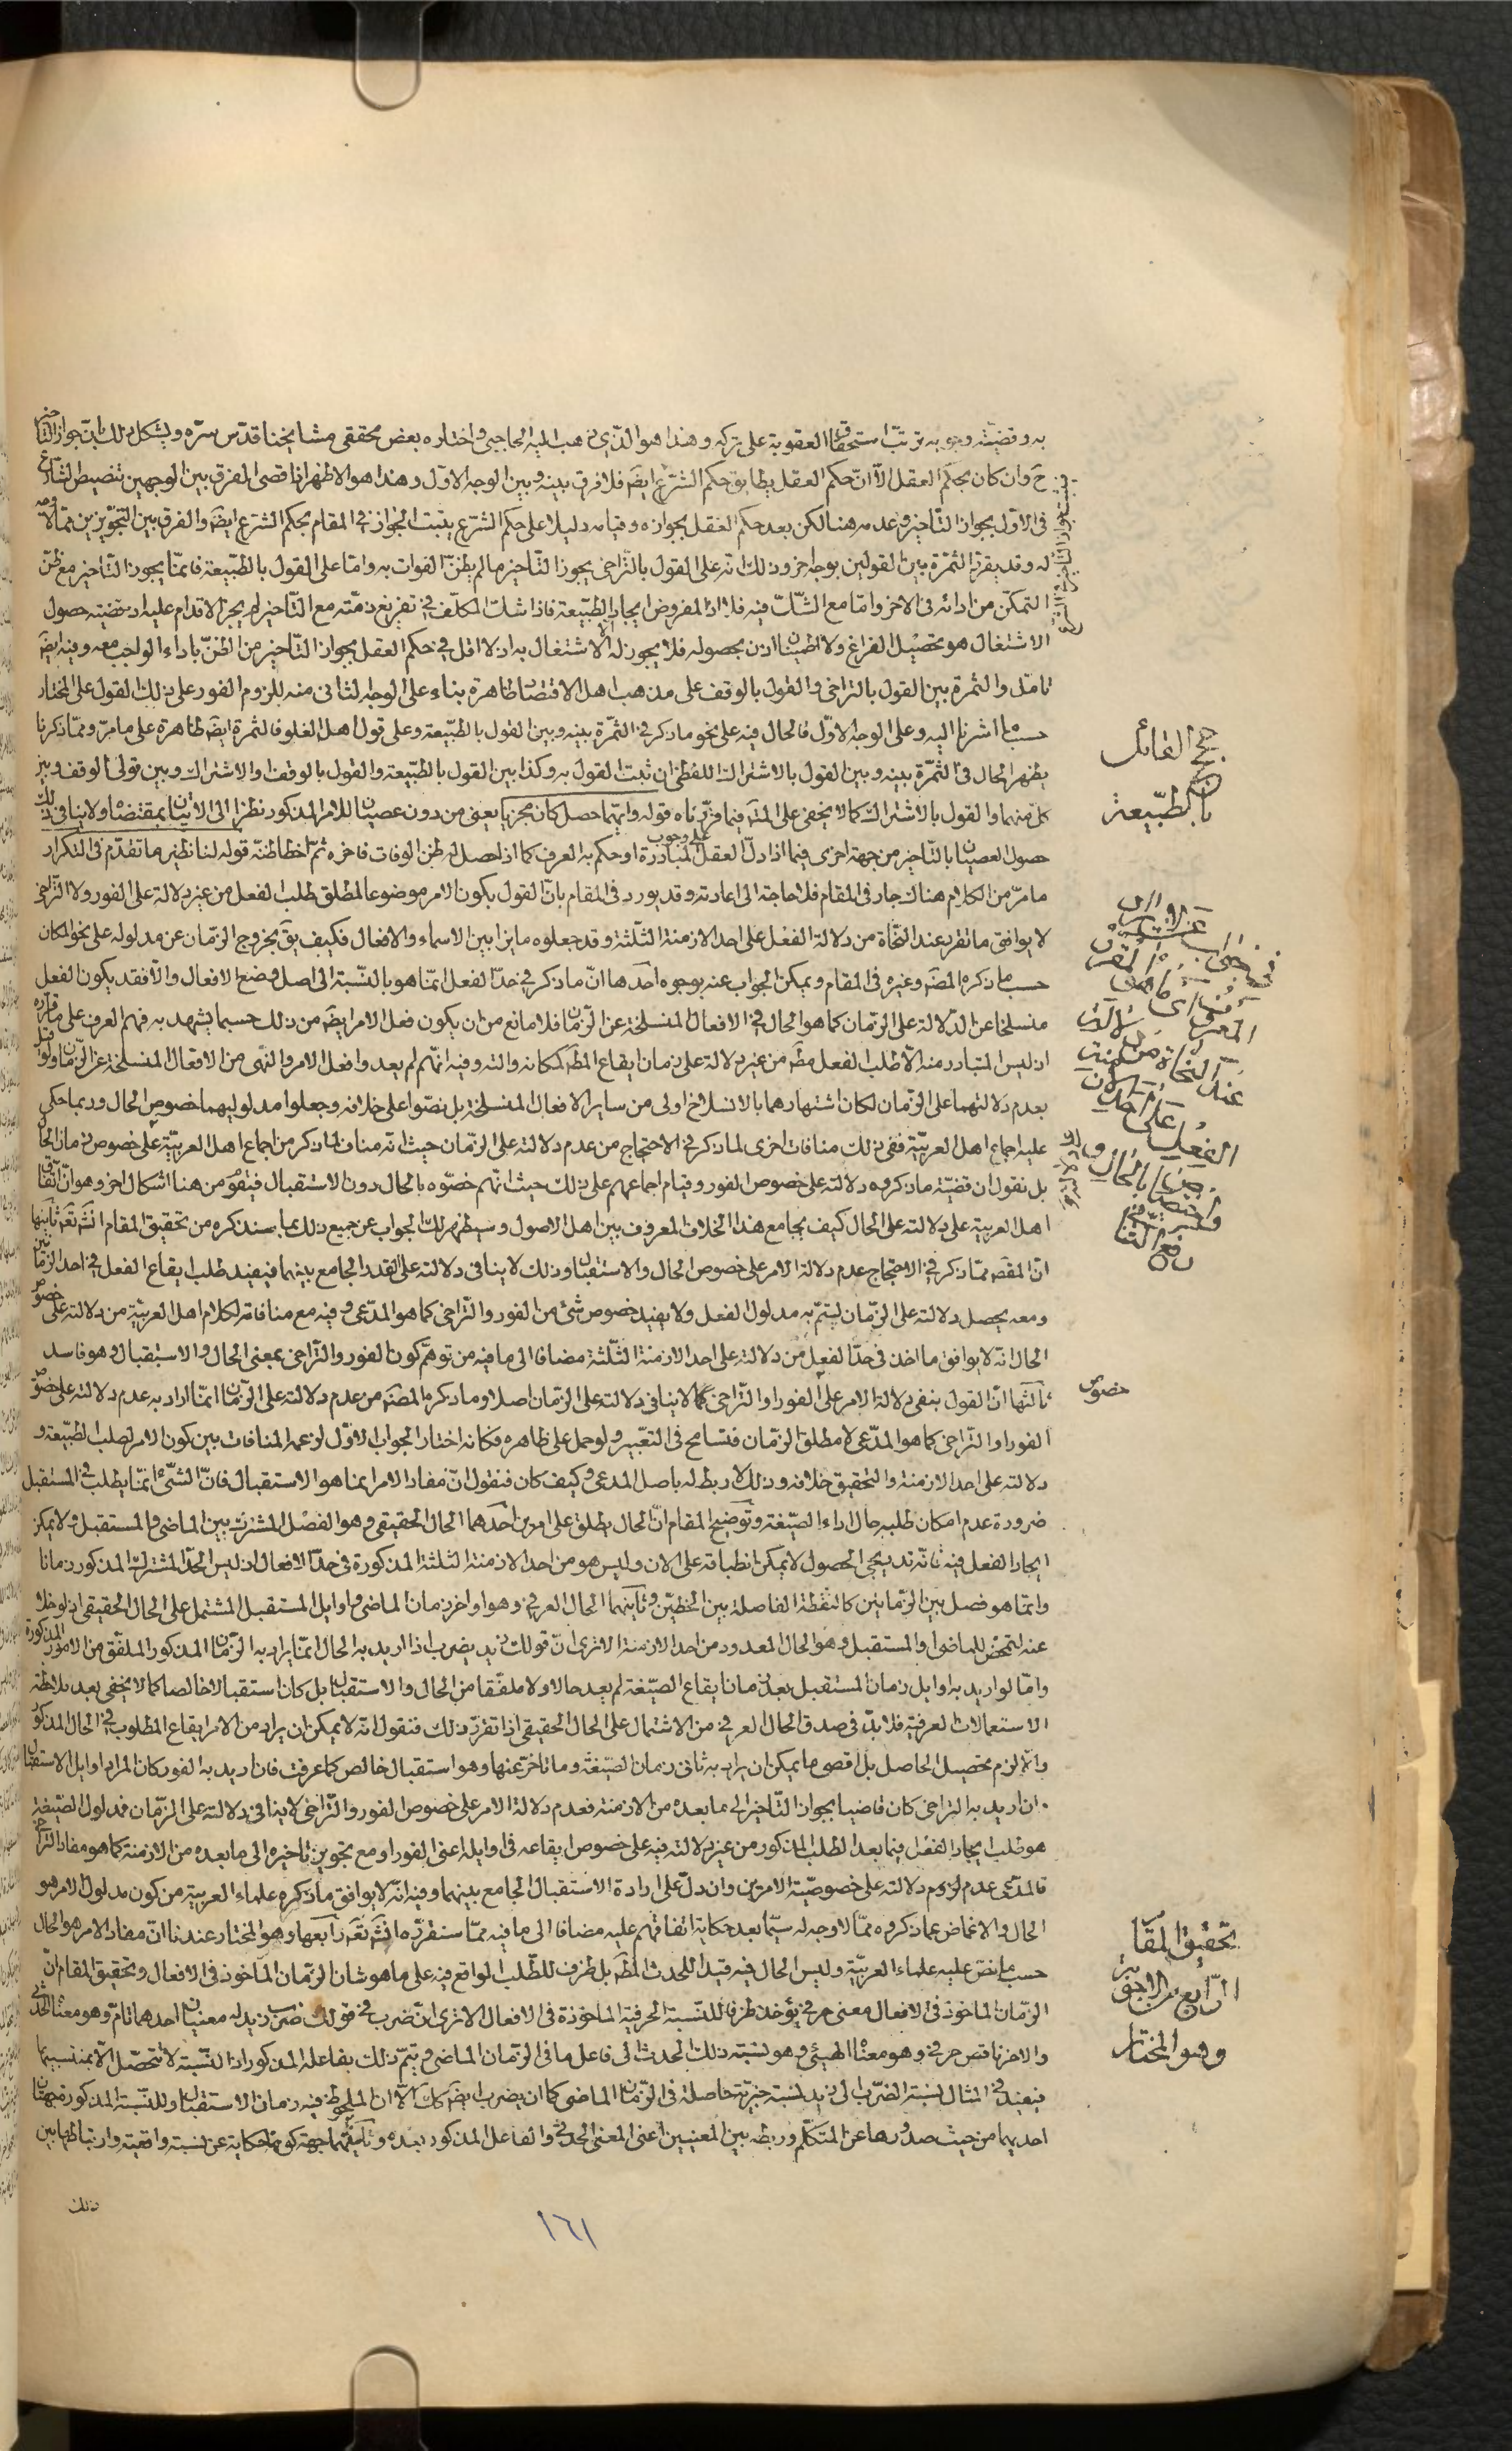 به وقضيّته وجوبه ترتّب استحقاق العقوبة على تركه وهذا هو الذى ذهب اليه الحاجبى واختاره بعض محققى مشايخنا قدّس سرّه ويشكل ذلك بانّ جواز التاخير
ح وان كان بحكم العقل الّا انّ حكم العقل يطابق حكم الشرع ايضَ فلا فرق بينه وبين الوجه الاوّل وهذا هو الاظهر اذا قصى الفرق بين الوجهين تنصيص الشارع
فى الاوّل بجواز التاخير وعدمه هنا لكن بعد حكم العقل بجوازه وقيامه دليلا على حكم الشرع يثبت الجواز فى المقام بحكم الشرع ايضَ والفرق بين التجويزين ممّا لا وجه
له وقد يقرّر الثمرة بين القولين بوجه اخر وذلك انه على القول بالتراخى يجوز التاخير ما لم يظنّ الفوات به وامّا على القول بالطبيعة فانمّا يجوز التاخير مع ظنّ
التمكّن من ادائه فى الاخر وامّا مع الشكّ فيه فلا اذ المفروض ايجاد الطبيعة فاذا شك المكلّف فى تفريغ ذمّته مع التاخير لم يجز الاقدام عليه اذ قضيّة حصول
الاشتغال هو تحصيل الفراغ ولا اطمينان اذن بحصوله فلا يجوز له الاشتغال به اذ لا اقل فى حكم العقل بجواز التاخير من الظنّ باداء الواجب معه وفيه ايضَ
تامّل والثمرة بين القول بالتراخى والقول بالوقف على مذهب اهل الاقتصاد ظاهرة بناء على الوجه الثانى منه للزوم الفور على ذلك القول على المختار
حسبما اشرنا اليه وعلى الوجه الاوّل فالحال فيه على نحو ما ذكر فى الثمّرة بينه وبين القول بالطبيعة وعلى قول اهل الغلو فالثمرة ايضَ ظاهرة على ما مرّ وممّا ذكرنا
يظهر الحال فى الثمّرة بينه وبين القول بالاشتراك اللفظى ان ثبت القول به وكذا بين القول بالطبيعة والقول بالوقف او الاشتراك وبين قولى الوقف وبين
كل منهما والقول بالاشتراك كما لا يخفى على المتامّل فيما قرّرناه قوله وايّهما حصل كان مجزيا يعنى من دون عصيان للامر المذكور نظرا الى الاتيان بمقتضاه ولا ينافى ذلك
حصول العصيان بالتاخير من جهة اخرى فيما اذا دلّ العقل على وجوب المبادرة او حكم به العرف كما اذا حصل له ظن الوفات فاخره ثمّ اخطا ظنّه قوله لنا نظير ما تقدّم فى التكرار
ما مرّ من الكلام هناك جار فى المقام فلا حاجة الى اعادته وقد يورد فى المقام بانّ القول بكون الامر موضوعا لمطلق طلب الفعل من غير دلالة على الفور ولا التراخى
لا يوافق ما تقرر عند النحّاة من دلالة الفعل على احد الازمنة الثلثة وقد جعلوه مايزا بين الاسماء والافعال فكيف يقَ بخروج الزمان عن مدلوله على نحو المكان
حسبما ذكره المصَ وغيره فى المقام ويمكن الجواب عنه بوجوه احدها انّ ما ذكر فى حدّ الفعل انمّا هو بالنسبة الى اصل وضع الافعال والّا فقد يكون الفعل
منسلخا عن الدلالة على الزمان كما هو الحال فى الافعال المنسلخة عن الزمان فلا مانع من ان يكون فعل الامر ايضَ من ذلك حسبما يشهد به فهم العرف على ما قرّره
اذ ليس المتبادر منه الّا طلب الفعل مطَ من غير دلالة على زمان ايقاع المطَ كمكانه والته وفيه انهم لم يعدوا فعل الامر والنهى من الافعال المنسلخة عن الزمان ولو قيل
بعدم دلالتهما على الزمان لكان اشتهارهما بالانسلاخ اولى من ساير الافعال المنسلخة بل نصّوا على خلافه وجعلوا مدلوليهما خصوص الحال وربما حكى
عليه اجماع اهل العربيّة ففى ذلك منافات اخرى لما ذكر فى الاحتجاج من عدم دلالته على الزمان حيث انه مناف لما ذكر من اجماع اهل العربيّة على خصوص زمان الحال
بل نقول ان قضيّة ما ذكروه دلالته على خصوص الفور وقيام اجماعهم على ذلك حيث انّهم خصّوه بالحال دون الاستقبال فيقوم من هنا اشكال اخر وهو انّ اتفاق
اهل العربية على دلالته على الحال كيف يجامع هذا الخلاف المعروف بين اهل الاصول وسيظهر لك الجواب عن جميع ذلك بما سنذكره من تحقيق المقام انشَ تعَ ثانيها
انّ المقصَ ممّا ذكر فى الاحتجاج عدم دلالة الامر على خصوص الحال والاستقبال وذلك لا ينافى دلالته على القدر الجامع بينهما فيفيد طلب ايقاع الفعل فى احد الزمانين
ومعه يحصل دلالته على الزمان ليتمّ به مدلول الفعل ولا يفيد خصوص شئ من الفور والتراخى كما هو المدّعى وفيه مع منافاته لكلام اهل العربيّة من دلالته على خصوص
الحال انه لا يوافق ما اخذ فى حدّ الفعل من دلالته على احد الازمنة الثلثة مضافا الى ما فيه من توهّم كون الفور والتراخى بمعنى الحال والاستقبال وهو فاسد
ثالثها انّ القول بنفى دلالة الامر على الفور او التراخى كما لا ينافى دلالته على الزمان اصلا وما ذكره المصَ من عدم دلالته على الزمان انمّا اراد به عدم دلالته على خصوص
الفور او التراخى كما هو المدّعى لا مطلق الزمان فتسامح فى التعبير ولو حمل على ظاهره فكانه اختار الجواب الاوّل لزعمه المنافات بين كون الامر لطلب الطبيعة و
دلالته على احد الازمنة والتحقيق خلافه وذلك لا ربط له باصل المدعى وكيف كان فنقول انّ مفاد الامر انما هو الاستقبال فانّ الشئ انمّا يطلب فى المستقبل
ضرورة عدم امكان طلبه حال اداء الصيغة وتوضيح المقام انّ الحال يطلق على امرين احدهما الحال الحقيقى وهو الفصل المشترك بين الماضى والمستقبل ولا يمكن
ايجاد الفعل فيه فانه تدريجى الحصول لا يمكن انطباقه على الان وليس هو من احد الازمنة الثلثة المذكورة فى حدّ الافعال اذ ليس الحدّ المشترك المذكور زمانا
وانمّا هو فصل بين الزمانين كالنقطة الفاصلة بين الخطين وثانيهما الحال العرفى وهو اواخر زمان الماضى واوايل المستقبل المشتمل على الحال الحقيقى اذ لو خلا
عنه لتمحّض للماضى او المستقبل وهو الحال المعدود من احد الازمنة الا ترى انّ قولك زيد يضرب اذا اريد به الحال انمّا يراد به الزمان المذكور الملفّق من الامور المذكورة
وامّا لو اريد به اوايل زمان المستقبل بعد زمان ايقاع الصيغة لم يعد حالا ولا ملفّقا من الحال والاستقبال بل كان استقبالا خالصا كما لا يخفى بعد ملاحظة
الاستعمالات العرفية فلا بدّ فى صدق الحال العرفى من الاشتمال على الحال الحقيقى اذا تقرّر ذلك فنقول انه لا يمكن ان يراد من الامر ايقاع المطلوب فى الحال المذكور
والّا لزم تحصيل الحاصل بل اقصى ما يمكن ان يراد به ثانى زمان الصيغة وما تاخر عنها وهو استقبال خالص كما عرفت فان اريد به الفور كان المراد اوايل الاستقبال
وان اريد به التراخى كان قاضيا بجواز التاخير الى ما بعده من الازمنة فعدم دلالة الامر على خصوص الفور والتراخى لا ينافى دلالته على الزمان فمدلول الصيغة
هو طلب ايجاد الفعل فيما بعد الطلب المذكور من غير دلالته فيه على خصوص ايقاعه فى اوايله اعنى الفور او مع تجويز تاخيره الى ما بعده من الازمنة كما هو مفاد التراخى
فالمدّعى عدم لزوم دلالته على خصوصيّة الامرين وان دلّ على ارادة الاستقبال الجامع بينهما وفيه انّه لا يوافق ما ذكره علماء العربية من كون مدلول الامر هو
الحال والاغماض عما ذكروه ممّا لا وجه له سيّما بعد حكاية اتفاقهم عليه مضافا الى ما فيه ممّا سنقرّره انشَ تعَ رابعها وهو المختار عندنا انّ مفاد الامر هو الحال
حسبما نصّ عليه علماء العربيّة وليس الحال فيه قيدا للحدث المطَ بل ظرف للطلب الواقع فيه على ما هو شان الزمان الماخوذ فى الافعال وتحقيق المقام انّ
الزمان الماخوذ فى الافعال معنى حرفى يؤخذ ظرفا للنسبة الحرفية الماخوذة فى الافعال الا ترى انّ ضرب فى قولك ضرب زيد له معنيان احدهما تامّ وهو معناه الحدثى
والاخر ناقص حرفى وهو معناه الهيئى وهو نسبة ذلك الحدث الى فاعل ما فى الزمان الماضى ويتمّ ذلك بفاعله المذكور اذ النّسبة لا تتحصّل الّا بمنتسبيها
فيفيد فى المثال نسبة الضرب الى زيد نسبة خبريّة حاصلة فى الزمان الماضى كما ان يضرب ايضَ كك الّا ان الملحوظ فيه زمان الاستقبال وللنّسبة المذكورة جهتان
احديهما من حيث صدورها عن المتكلّم وربطه بين المعنيين اعنى المعنى الحدثى والفاعل المذكور بعده وثانيتهما جهة كونها حكاية عن نسبة واقعية وارتباطها بين
ذلك
١٦١
حجج القائل
بالطبيعة
خصوص
تحقيق المقا
الرابع من الاجوبة
وهو المختار